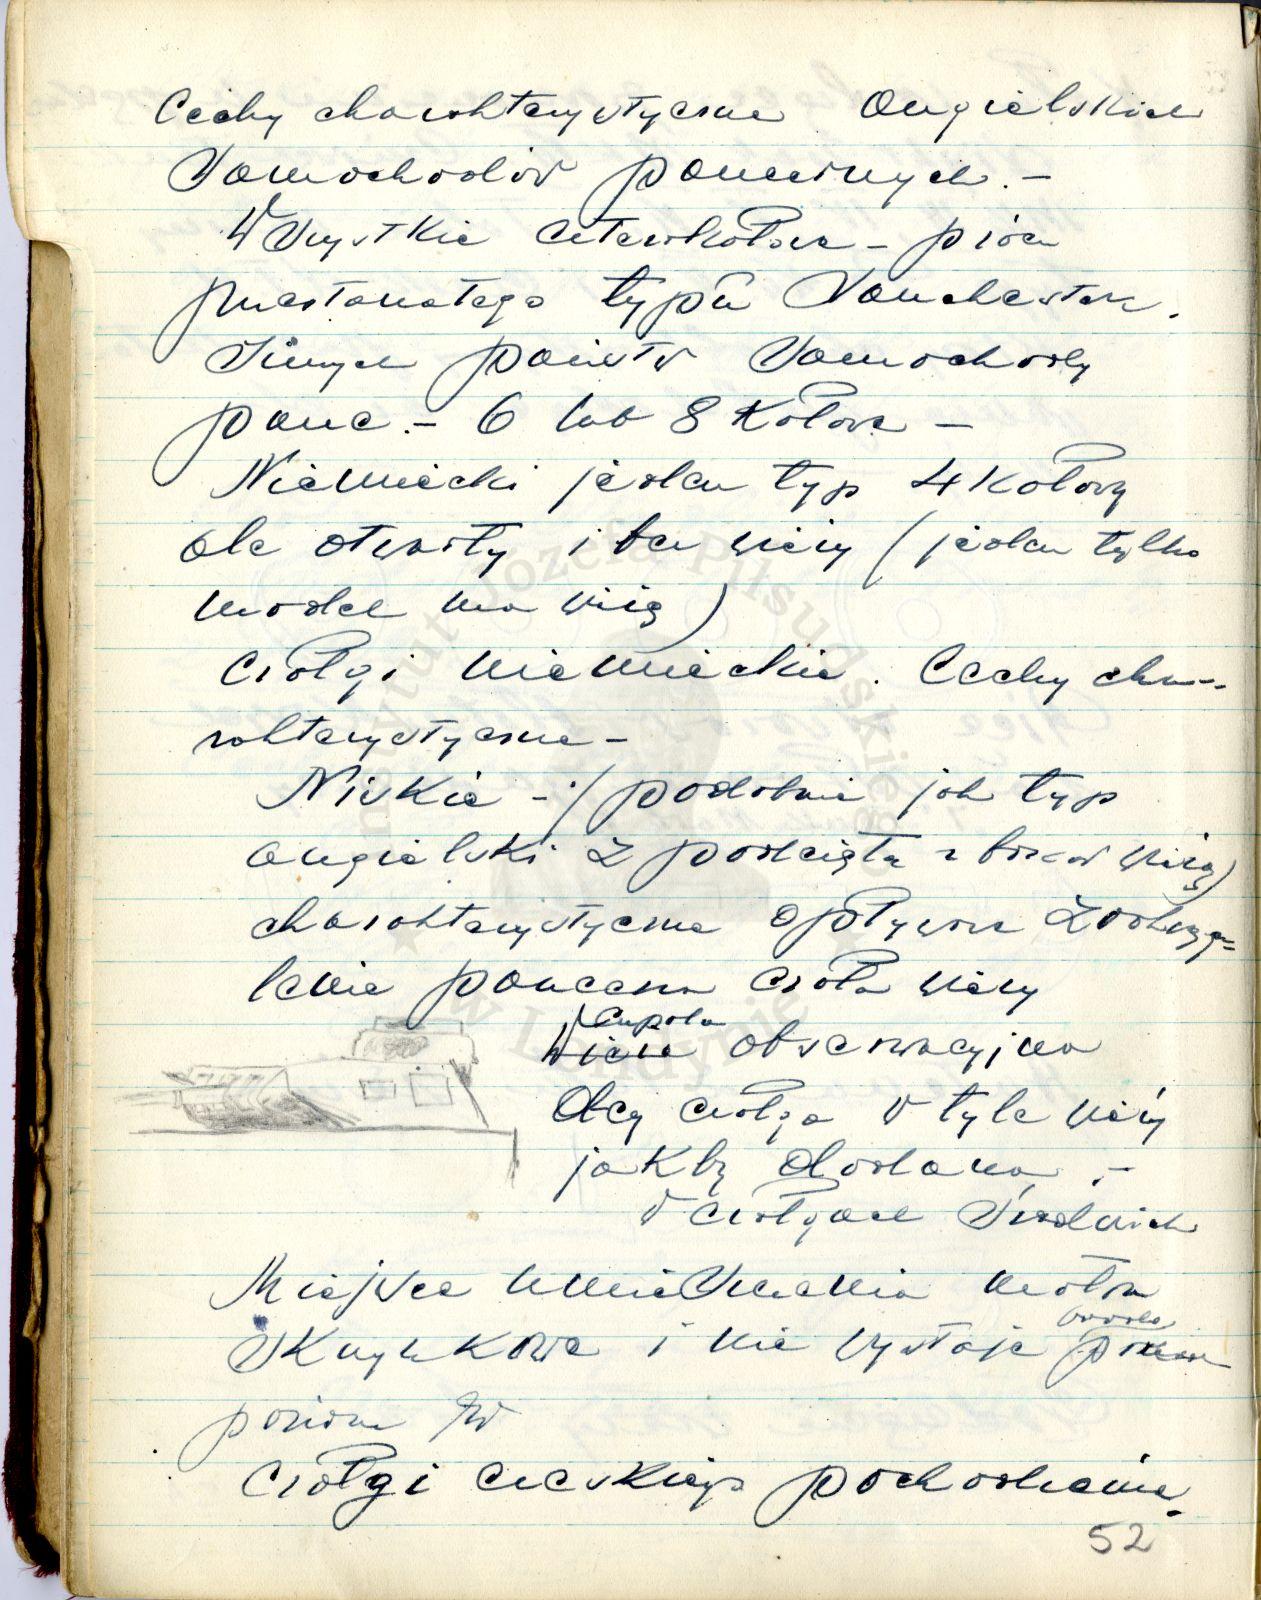 Cechy charakterystyczne angielskich
samochodów pancernych. –
Wszystkie czterokołowe – prócz
przestarzałego typu
Innych państw samochody
panc. – 6 lub 8 kołowe –
Niemiecki jeden typ 4 kołowy
ale otwarty i bez wieży (jeden tylko
model ma wieżę)
Czołgi niemieckie. Cechy cha-
rakterystyczne –
Niskie – (podobnie jak typ
angielski z podciętą z boków wieżą)
charakterystyczne opływowe zaokrą-
lenie pancerza czoła wieży
Cupola
Wieża obserwacyjna
dcy czołga w tyle wieży
jakby dodana. –
w czołgach średnich
Miejsce umieszczenia
skrzynkowe i nie wystaje
poziom
Czołgi czeskiego pochodzenia.
52
Instytut Józefa Piłsudskiego
w Londynie